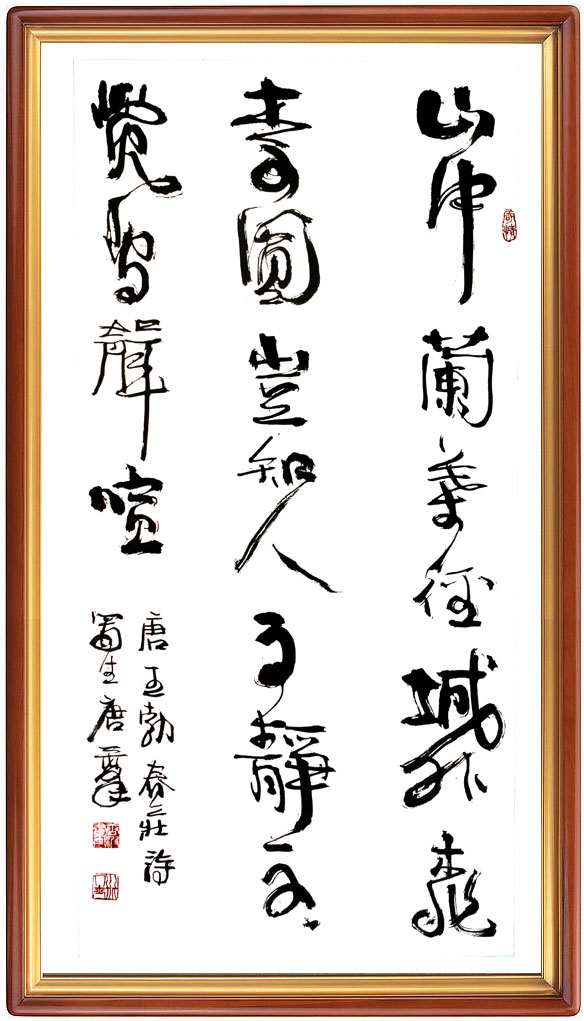 山中蘭葉徑城外桃
李園豈知人事靜不
覺鳥聲喧
唐王勃春莊詩
蜀生唐